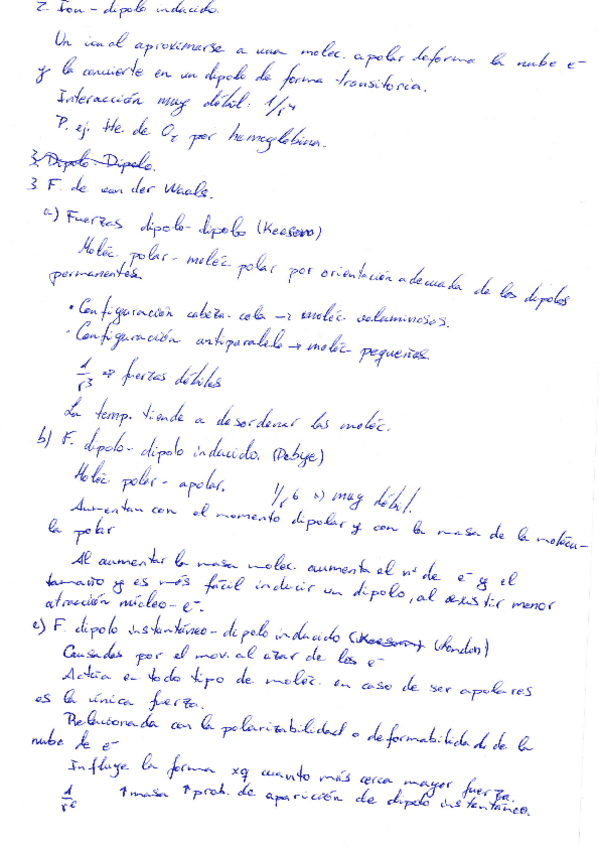 2. Ion - dipolo inducido.
Un ion al aproximarse a una moléc. apolar deforma la nube e⁻
y la convierte en un dipolo de forma transitoria.
Interacción muy débil. 1/r⁴
P. ej. tte. de O₂ por hemoglobina.
3. Dipolo-Dipolo.
3 F. de van der Waals.
a) Fuerzas dipolo-dipolo (Keesom)
Moléc. polar - moléc. polar por orientación adecuada de los dipolos
permanentes.
• Configuración cabeza-cola → moléc voluminosas.
• Configuración antiparalelo → moléc pequeñas.
1/r³ ⇒ fuerzas débiles
La temp. tiende a desordenar las moléc.
b) F. dipolo-dipolo inducido. (Debye)
Moléc polar - apolar. 1/r⁶ ⇒ muy débil.
Aumentan con el momento dipolar y con la masa de la molécu-
la polar
Al aumentar la masa molec. aumenta el nº de e⁻ y el
tamaño y es más fácil inducir un dipolo, al existir menor
atracción núcleo-e⁻.
c) F. dipolo instantáneo-dipolo inducido (Keesom) (London)
Causadas por el mov. al azar de los e⁻
Actúa en todo tipo de moléc. en caso de ser apolares
es la única fuerza.
Relacionada con la polarizabilidad o deformabilidad de la
nube de e⁻
Influye la forma xq cuanto más cerca mayor fuerza.
1/r⁶ ↑masa ↑prob. de aparición de dipolo instantáneo.